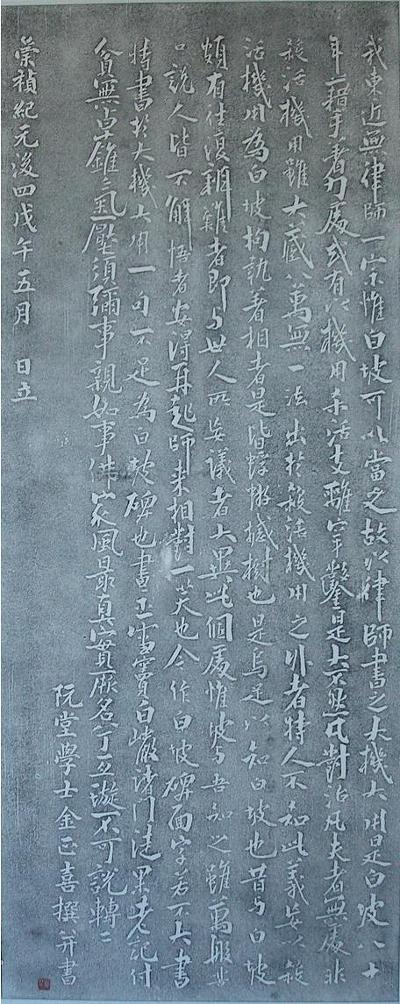 我東近無律師一宗惟白坡可以當之故以律師書之大機大用是白坡八十
年藉手著力處或有以機用殺活支離穿鑿是大不然凡對治凡夫者無處非
殺活機用雖大藏八萬無一法出於殺活機用之外者特人不知此義妄以殺
活機用為白坡拘執著相者是皆蜉蝣撼樹也是烏足以知白坡也昔与白坡
頗有往復辨難者即与世人所妄議者大異此個處惟坡与吾知之雖萬般苦
口說人皆不解悟者安得再起師來相對一笑也今作白坡碑面字若不大書
特書於大機大用一句不足為白坡碑也書示雪竇白巖諸門徒果老記付
貧無卓錐氣壓須彌事親如事佛家風最真實厥名兮亘璇不可說轉々
阮堂學士金正喜撰并書
崇禎紀元後四戊午五月 日立